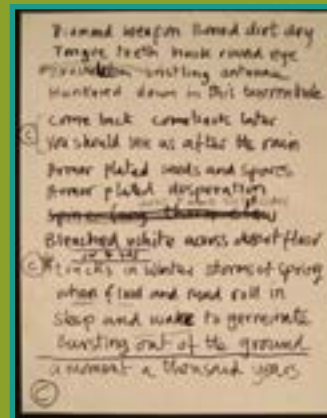 Diamond weapon boned dirt dry
Tongue teeth hook round eye
bristling antenna
Hunkered down in this
C come back come back later
You should see us after the rain
Armor plated seeds and spores
Armor plated desperation
Bleached white across desert floor
C in winter storms of spring
when flood and mud roll in
sleep and wake to germinate
bursting out of the ground
a moment a thousand years
C